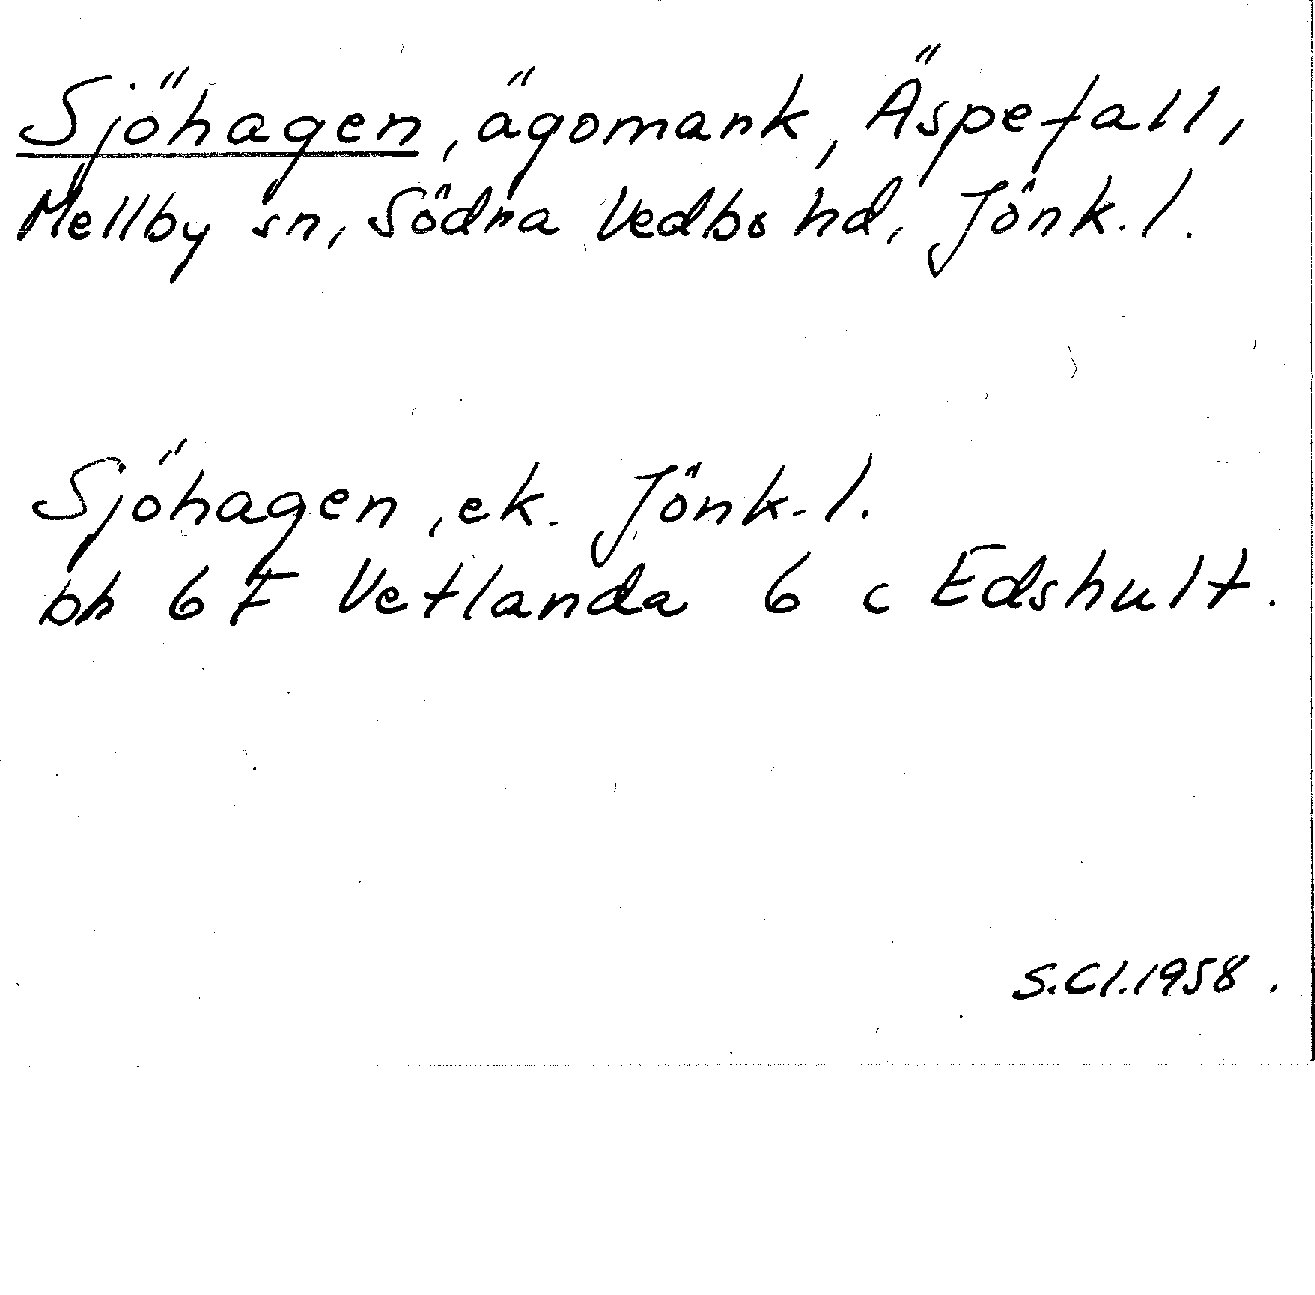 Sjöhagen, ägomark, Äspefall,
Mellby sn, Södra Vedbo hd, Jönk. l.
Sjöhagen, ek. Jönk. l.
bl 6 F Vetlanda 6 c Edshult.
S.Cl.1958.